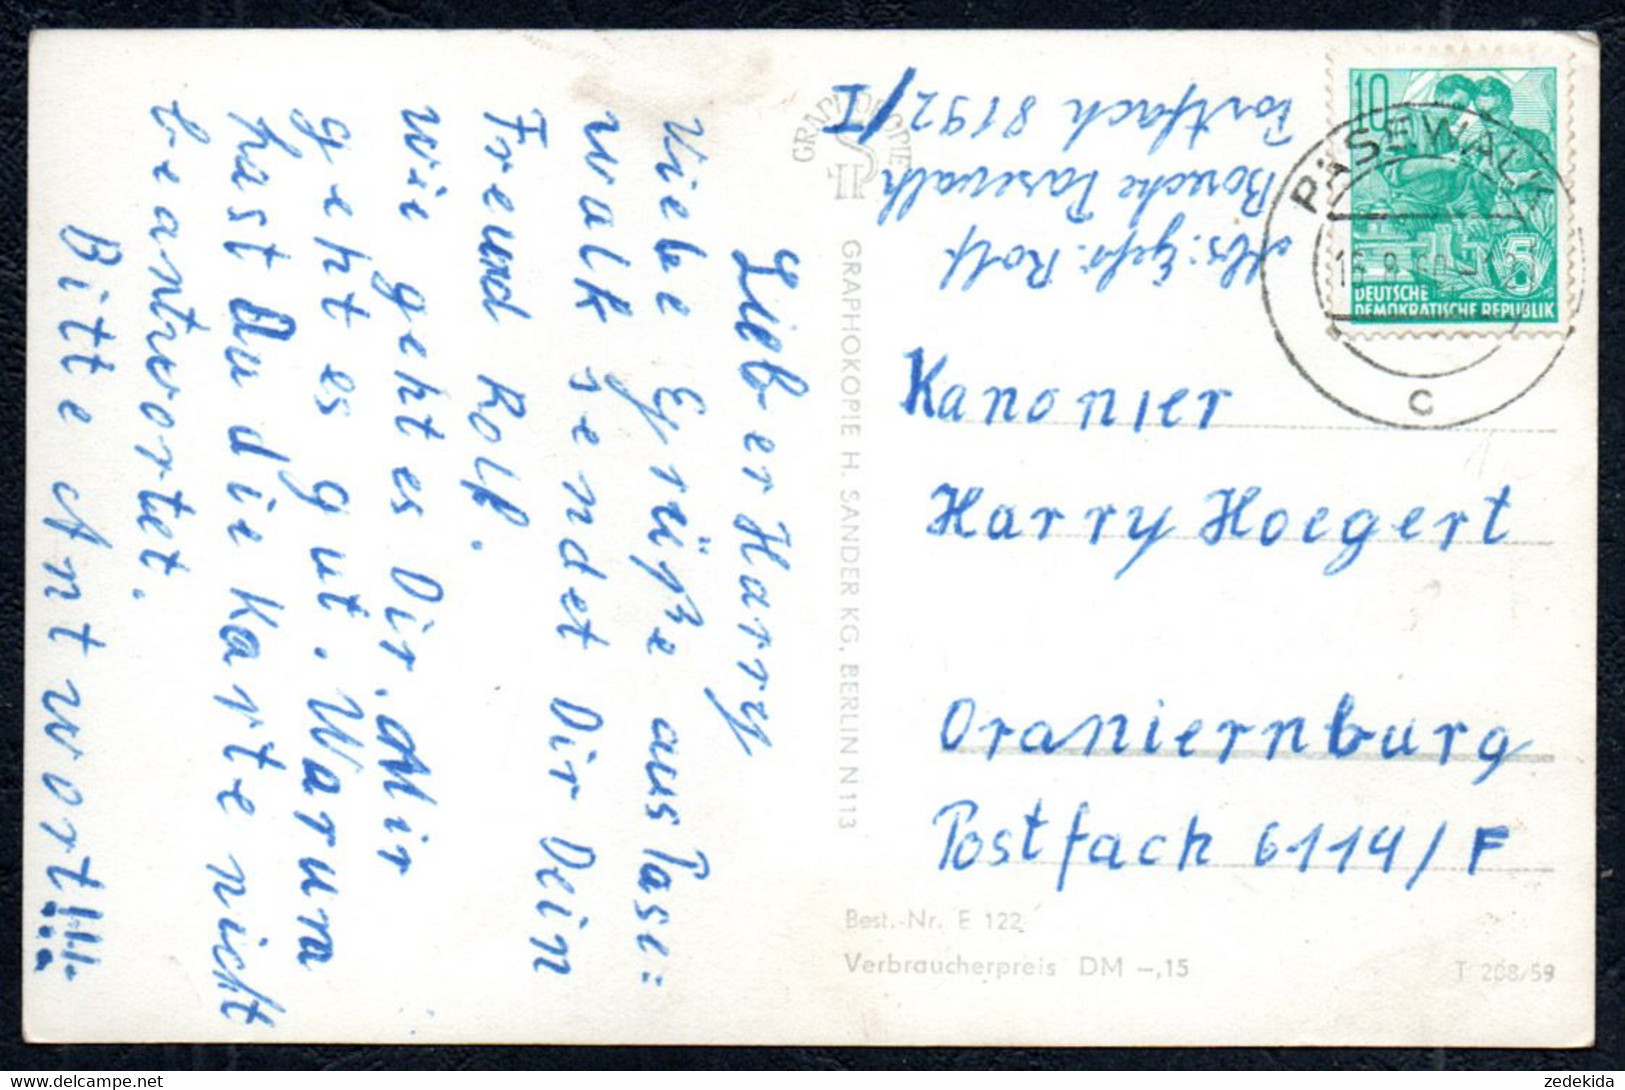 Lieber Harry
Viele Grüße aus Pase=
walk sendet Dir Dein
Freund Rolf.
wie geht es Dir. Mir
geht es gut. Warum
hast Du die Karte nicht
beantwortet.
Bitte Antwort!!!
GRAPHOKOPIE
H S
GRAPHOKOPIE H. SANDER KG, BERLIN N 113
Abs: Gefr. Rolf
Pasewalk
Postfach 8192/I
10
DEUTSCHE
DEMOKRATISCHE REPUBLIK
PASEWALK
c
Kanonier
Harry Hoegert
Oraniernburg
Postfach 6114/F
Best.-Nr. E 122
Verbraucherpreis DM -,15
T 208/59
zedekida